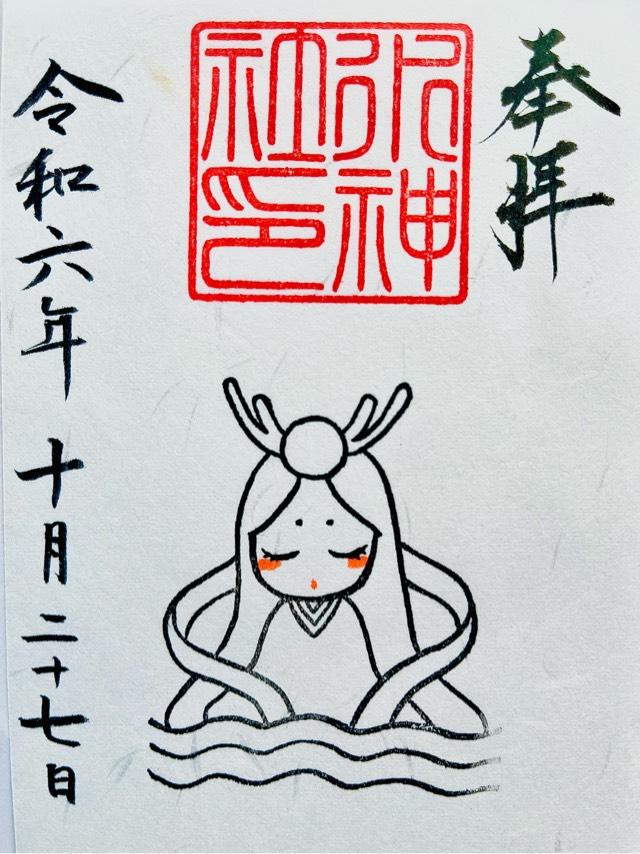 奉拝
水神
社印
令和六年 十月二十七日